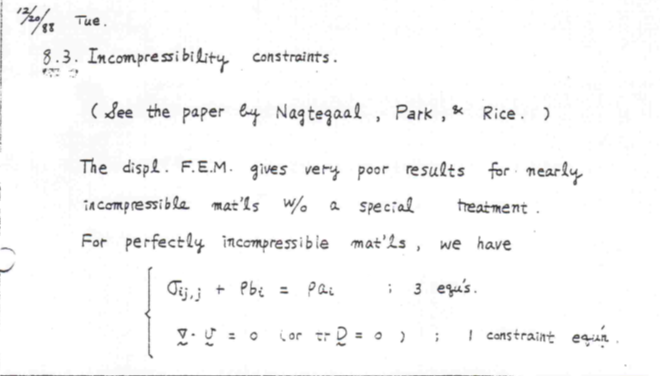 12/20/88 Tue.
8.3. Incompressibility constraints.
( See the paper by Nagtegaal , Park , & Rice. )
The displ. F.E.M. gives very poor results for nearly
incompressible mat'ls w/o a special treatment .
For perfectly incompressible mat'ls , we have
σij,j + ρbi = ρai ; 3 equ's.
∇ · v = 0 (or tr D = 0 ) ; 1 constraint equ'n .